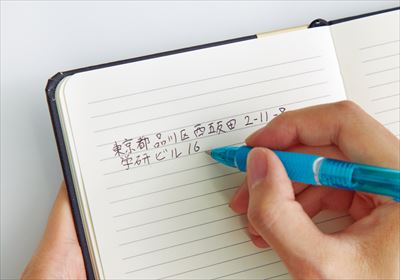 東京都品川区西五反田2-11-8
学研ビル16